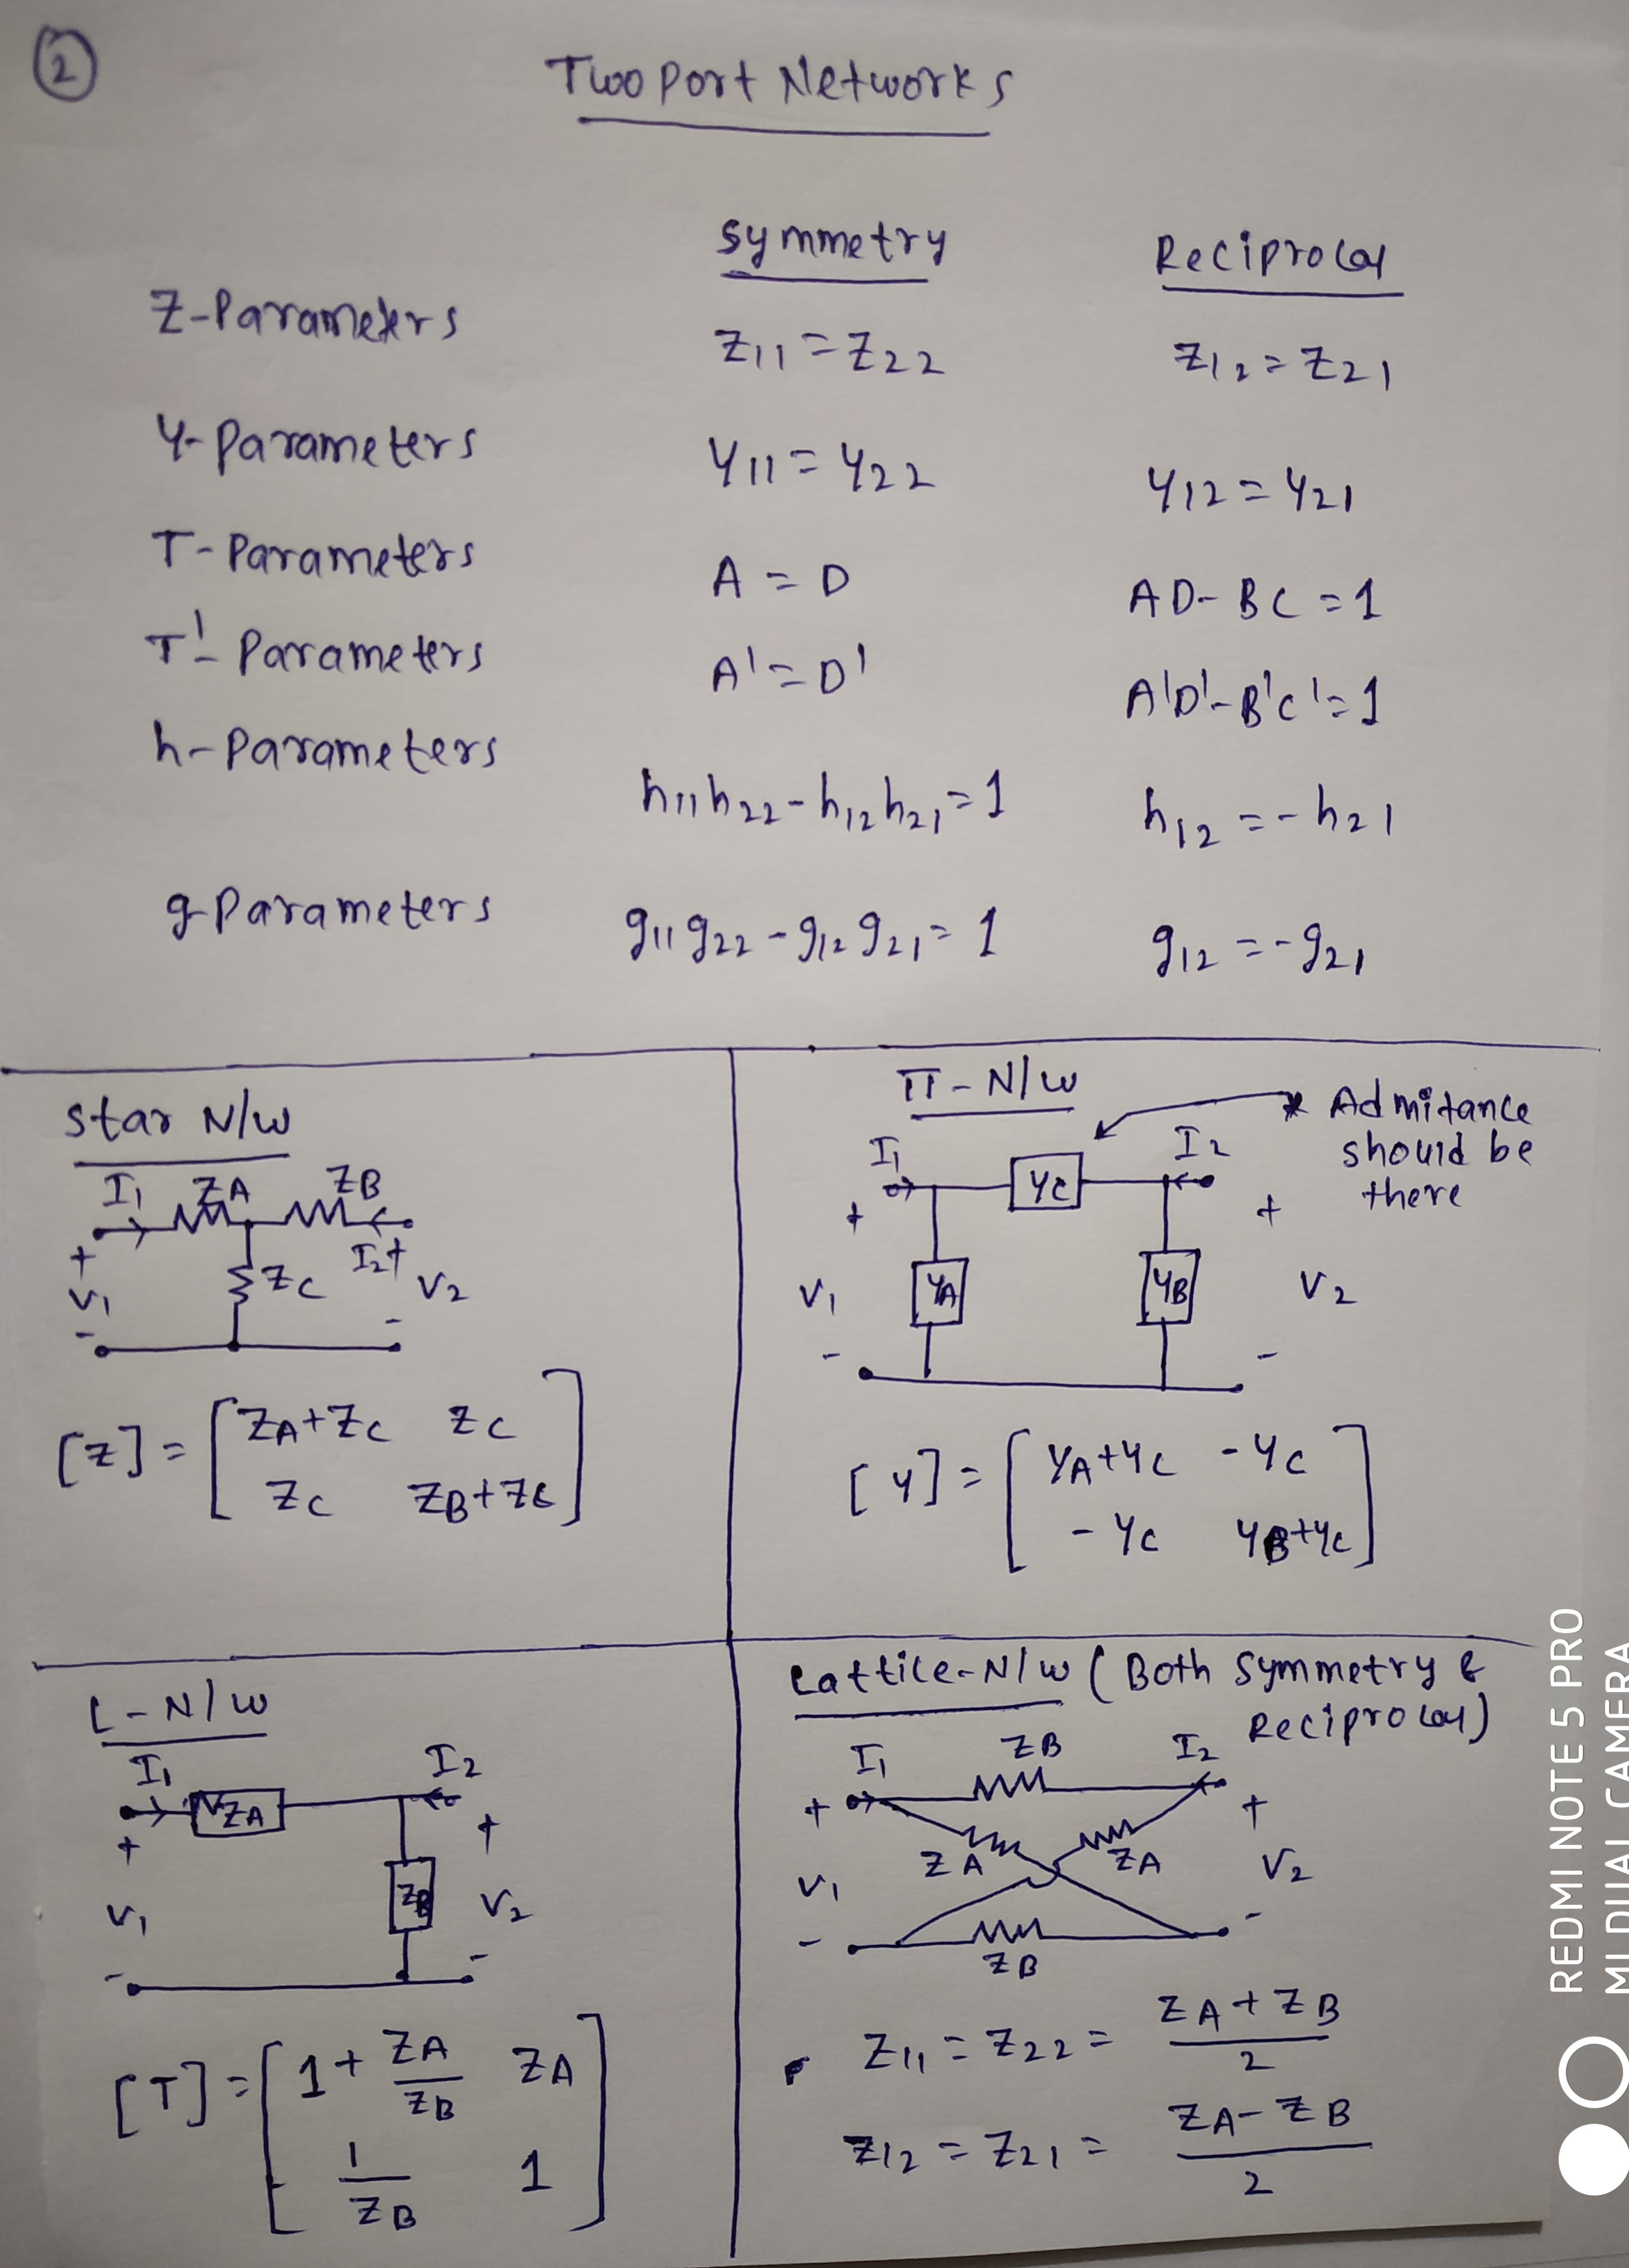 2
Two Port Networks
Symmetry Reciprocal
Z-Parameters Z11 = Z22 Z12 = Z21
Y-Parameters Y11 = Y22 Y12 = Y21
T-Parameters A = D AD-BC = 1
T'-Parameters A' = D' A'D'-B'C' = 1
h-Parameters h11h22-h12h21 = 1 h12 = -h21
g-Parameters g11g22-g12g21 = 1 g12 = -g21
Star N/W
I1 ZA ZB
+ ZC I2 +
V1 V2
- -
[Z] = [ ZA+ZC ZC
ZC ZB+ZC ]
π-N/W
* Admitance
should be
there
I1 YC I2
+ +
V1 YA YB V2
- -
[Y] = [ YA+YC -YC
-YC YB+YC ]
L-N/W
I1 I2
ZA
+ +
V1 ZB V2
- -
[T] = [ 1+ZA/ZB ZA
1/ZB 1 ]
Lattice-N/W (Both Symmetry &
Reciprocal)
I1 ZB I2
+ +
ZA ZA
V1 V2
- -
ZB
Z11 = Z22 = ZA+ZB/2
Z12 = Z21 = ZA-ZB/2
REDMI NOTE 5 PRO
MI DUAL CAMERA